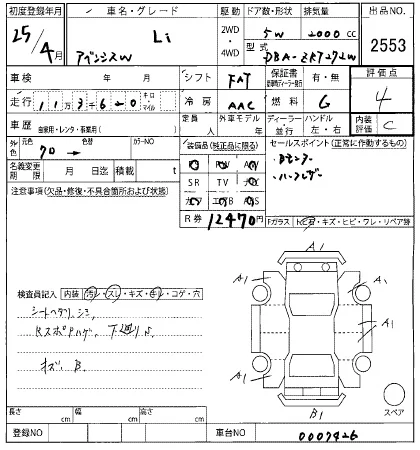 初度登録年月 車名・グレード 駆動 ドア数・形状 排気量 出品NO.
25/4月 アベンシスW Li 2WD・4WD 5W 2000cc 2553
型式 DBA-ZRT272W
車検 年 月 シフト FAT 保証書 有・無 評価点 4
走行 113620 キロ・マイル 冷房 AAC 燃料 G 内装評価 C
車歴 自家用・レンタ・事業用( ) 定員 人 外車モデル 年 ディーラー・並行 ハンドル 左・右
外色 元色 70 → 色替 カラーNO 装備品(純正品に限る) セールスポイント(正常に作動するもの)
名義変更期限 月 日迄 積載 t SR TV
・Bモニター
・ハーフレザー
注意事項(欠品・修復・不具合箇所および状態)
R券 12470円 Fガラス トビ石・キズ・ヒビ・ワレ・リペア跡
検査員記入 内装 汚レ・スレ・キズ・キレ・コゲ・穴
シートヘタリ、シミ、
RスポPハゲ、下廻りサ
キズ、B
A1
A1
A1
A1
A1
A1
B1
スペア
長さ cm 幅 cm 高さ cm
登録NO 車台NO 0007426